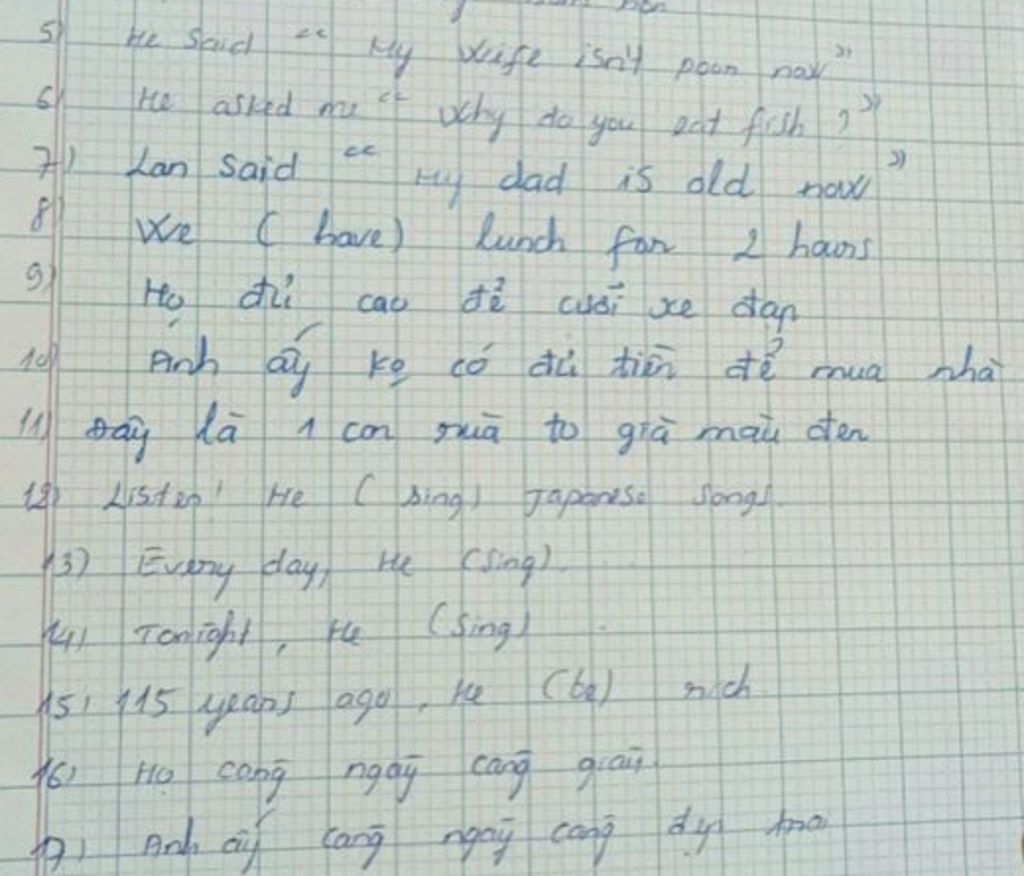 5) He said " My wife isn't poor now"
6) He asked me " Why do you eat fish ?"
7) Lan said " My dad is old now"
8) We ( have) lunch for 2 hours
9) Họ đủ cao để cưỡi xe đạp
10) Anh ấy ko có đủ tiền để mua nhà
11) Đây là 1 con rùa to già màu đen
12) Listen! He ( sing) Japanese songs.
13) Every day, He (sing).
14) Tonight, He (sing)
15) 115 years ago, He (be) rich
16) Họ càng ngày càng giàu
17) Anh ấy càng ngày càng đẹp trai